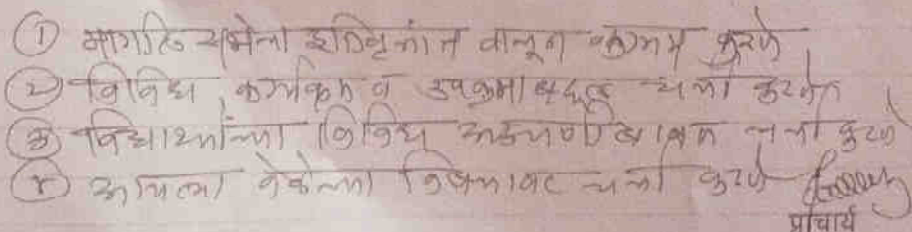 ① मागील सभेचा इतिवृत्तांत वाचून कायम करणे
② विविध कार्यक्रम व उपक्रमाबद्दल चर्चा करणे
③ विद्यार्थ्यांच्या विविध अडचणीविषयी चर्चा करणे
④ आयत्या वेळेच्या विषयावर चर्चा करणे
प्राचार्य